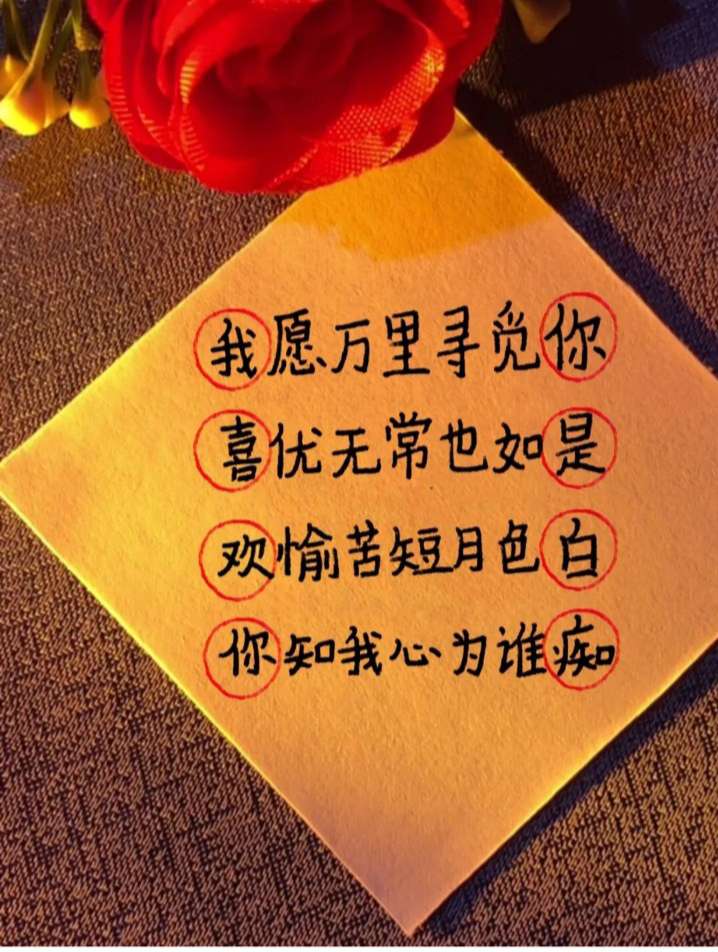 我愿万里寻觅你
喜优无常也如是
欢愉苦短月色白
你知我心为谁痴